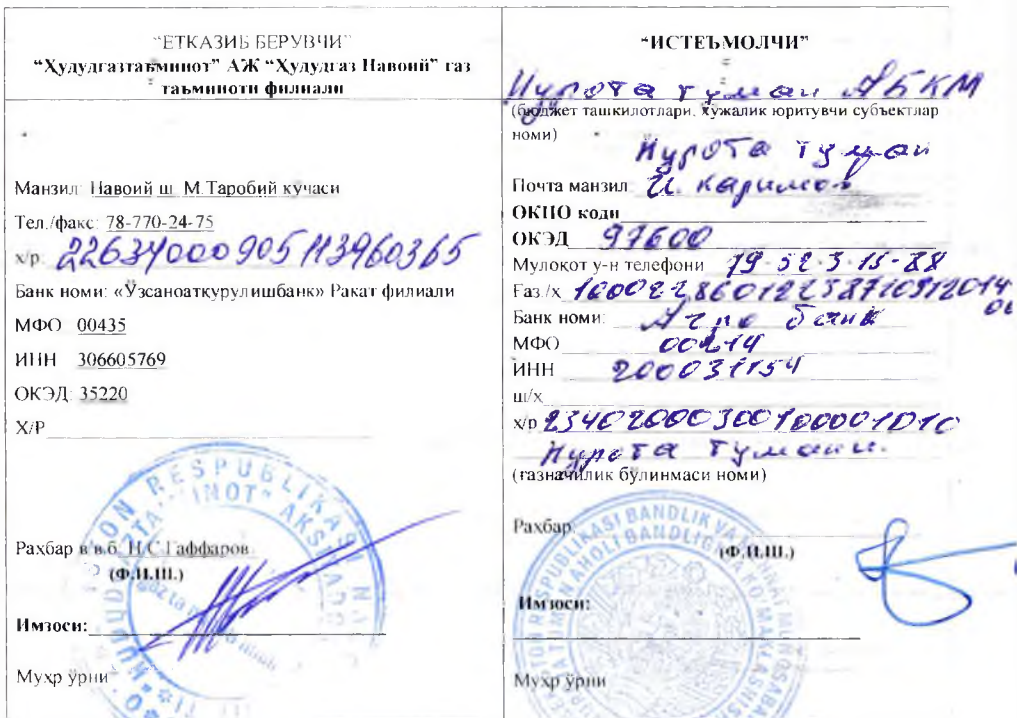 "ЕТКАЗИБ БЕРУВЧИ"
"Ҳудудгазтаъминот" АЖ "Ҳудудгаз Навоий" газ
таъминоти филиали
Манзил: Навоий ш. М.Таробий кўчаси
Тел./факс: 78-770-24-75
х/р: 22634000905113960365
Банк номи: «Ўзсаноатқурулишбанк» Ракат филиали
МФО 00435
ИНН 306605769
ОКЭД: 35220
Х/Р
Раҳбар в.в.б. Н.С.Гаффаров
(Ф.И.Ш.)
Имзоси:
Муҳр ўрни
"ИСТЕЪМОЛЧИ"
Нурота туман АБКМ
(бюджет ташкилотлари, хўжалик юритувчи субъектлар
номи)
Нурота туман
Почта манзил: И. Каримов
ОКПО коди
ОКЭД 97600
Мулоқот у-н телефони 79 52-3-15-88
Ғаз./х
Банк номи: Агро банк
МФО
ИНН 200031154
ш/х
х/р 23402000300100001010
Нурота Тумани.
(ғазначилик бўлинмаси номи)
Раҳбар
(Ф.И.Ш.)
Имзоси:
Муҳр ўрни